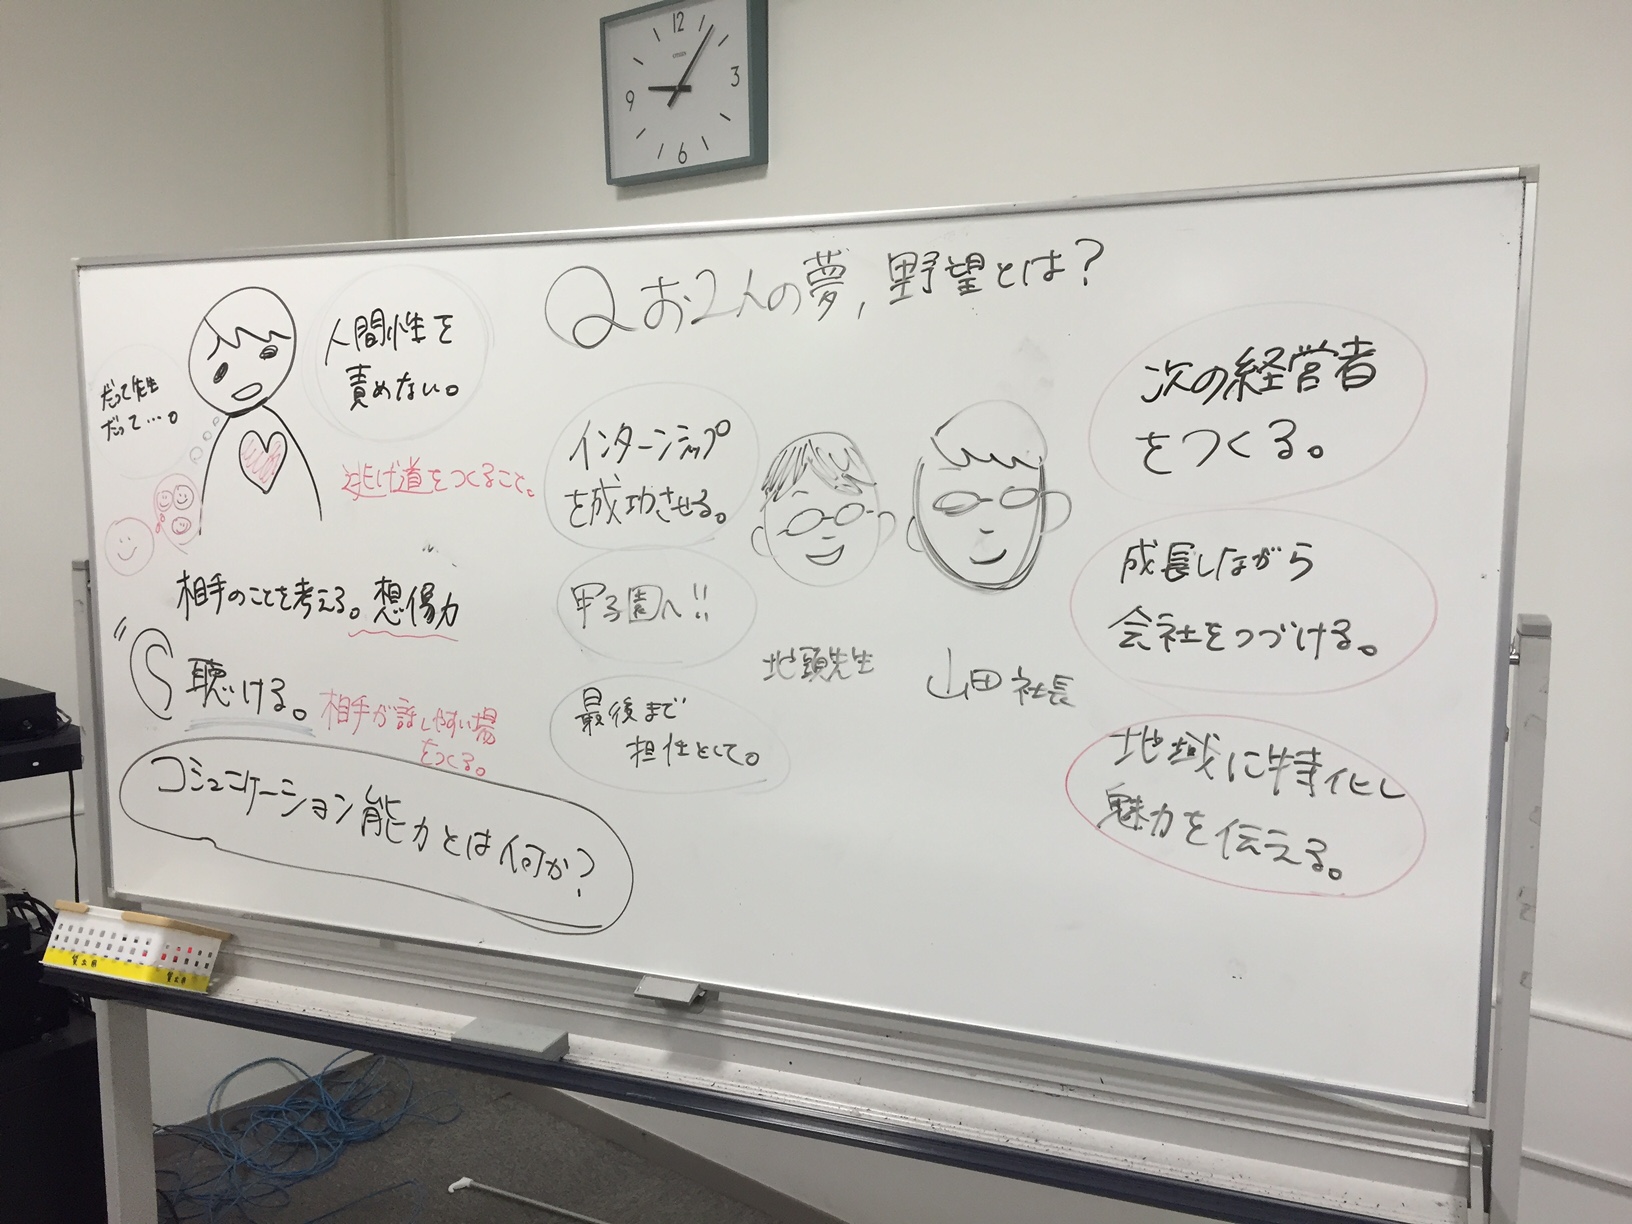 12
3
6
9
CITIZEN
Qお2人の夢,野望とは?
人間性を
責めない。
だって先生
だって…。
逃げ道をつくること。
相手のことを考える。想像力
聴ける。
相手が話しやすい場
をつくる。
コミュニケーション能力とは何か?
インターンシップ
を成功させる。
甲子園へ!!
最後まで
担任として。
地頭先生
山田社長
次の経営者
をつくる。
成長しながら
会社をつづける。
地域に特化し
魅力を伝える。